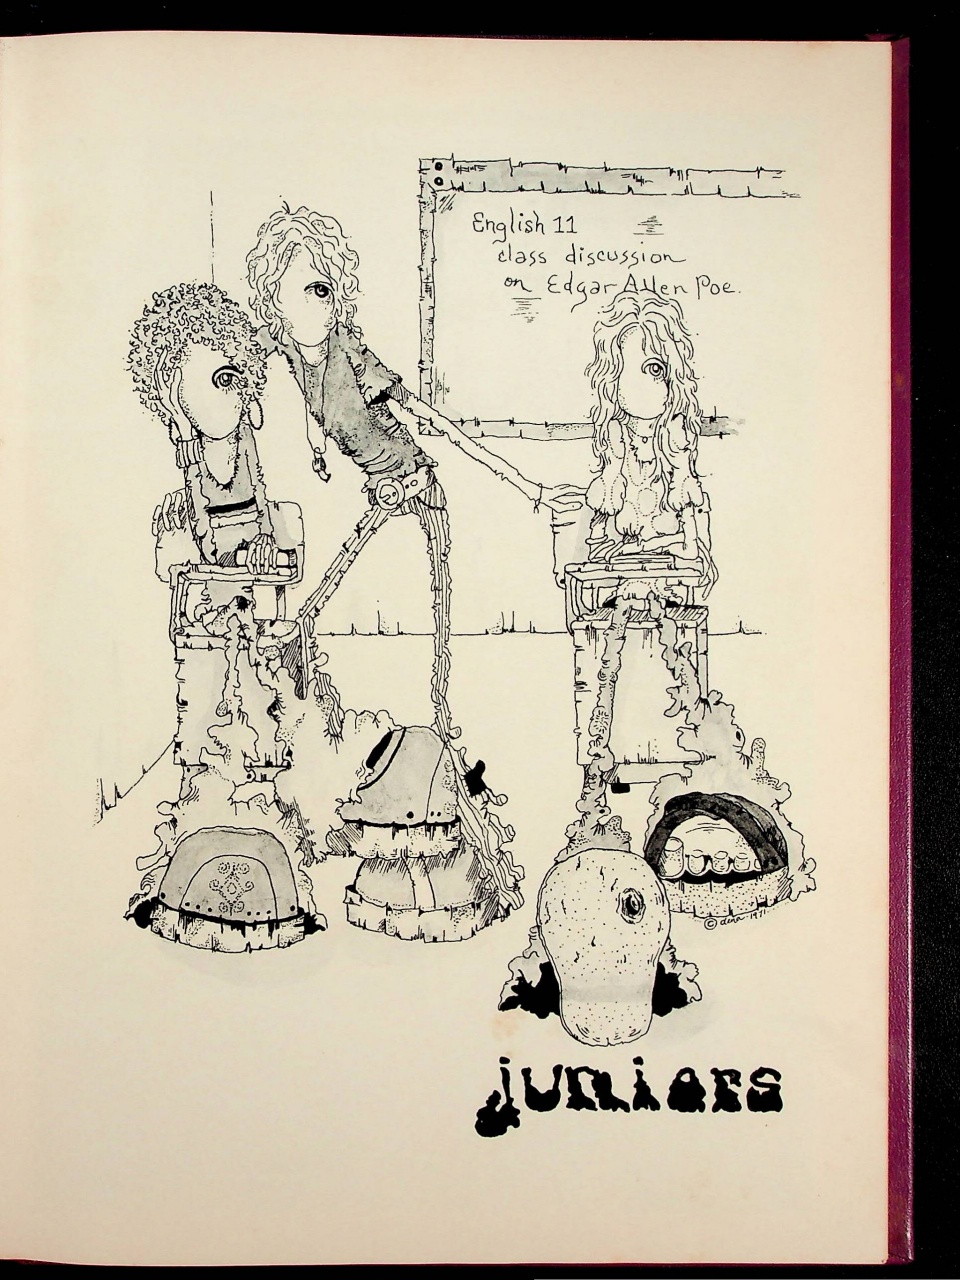 English 11
class discussion
on Edgar Allen Poe.
© dena 1971
juniors